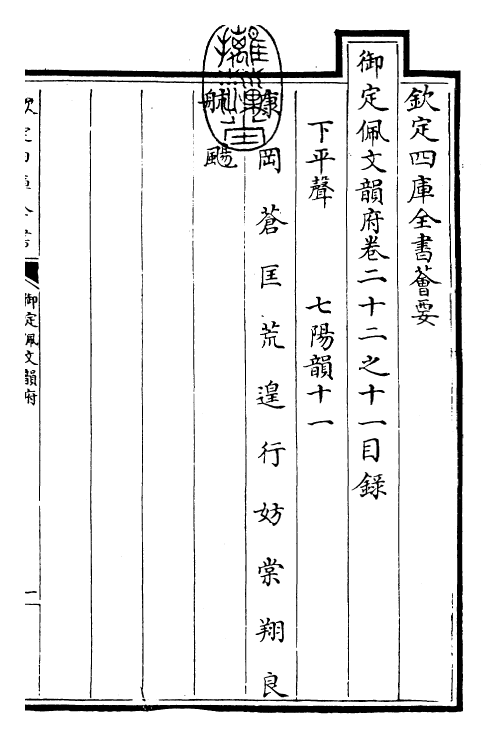 欽定四庫全書薈要
御定佩文韻府卷二十二之十一目錄
下平聲 七陽韻十一
康岡蒼匡荒遑行妨棠翔良
航颺
御定佩文韻府 一